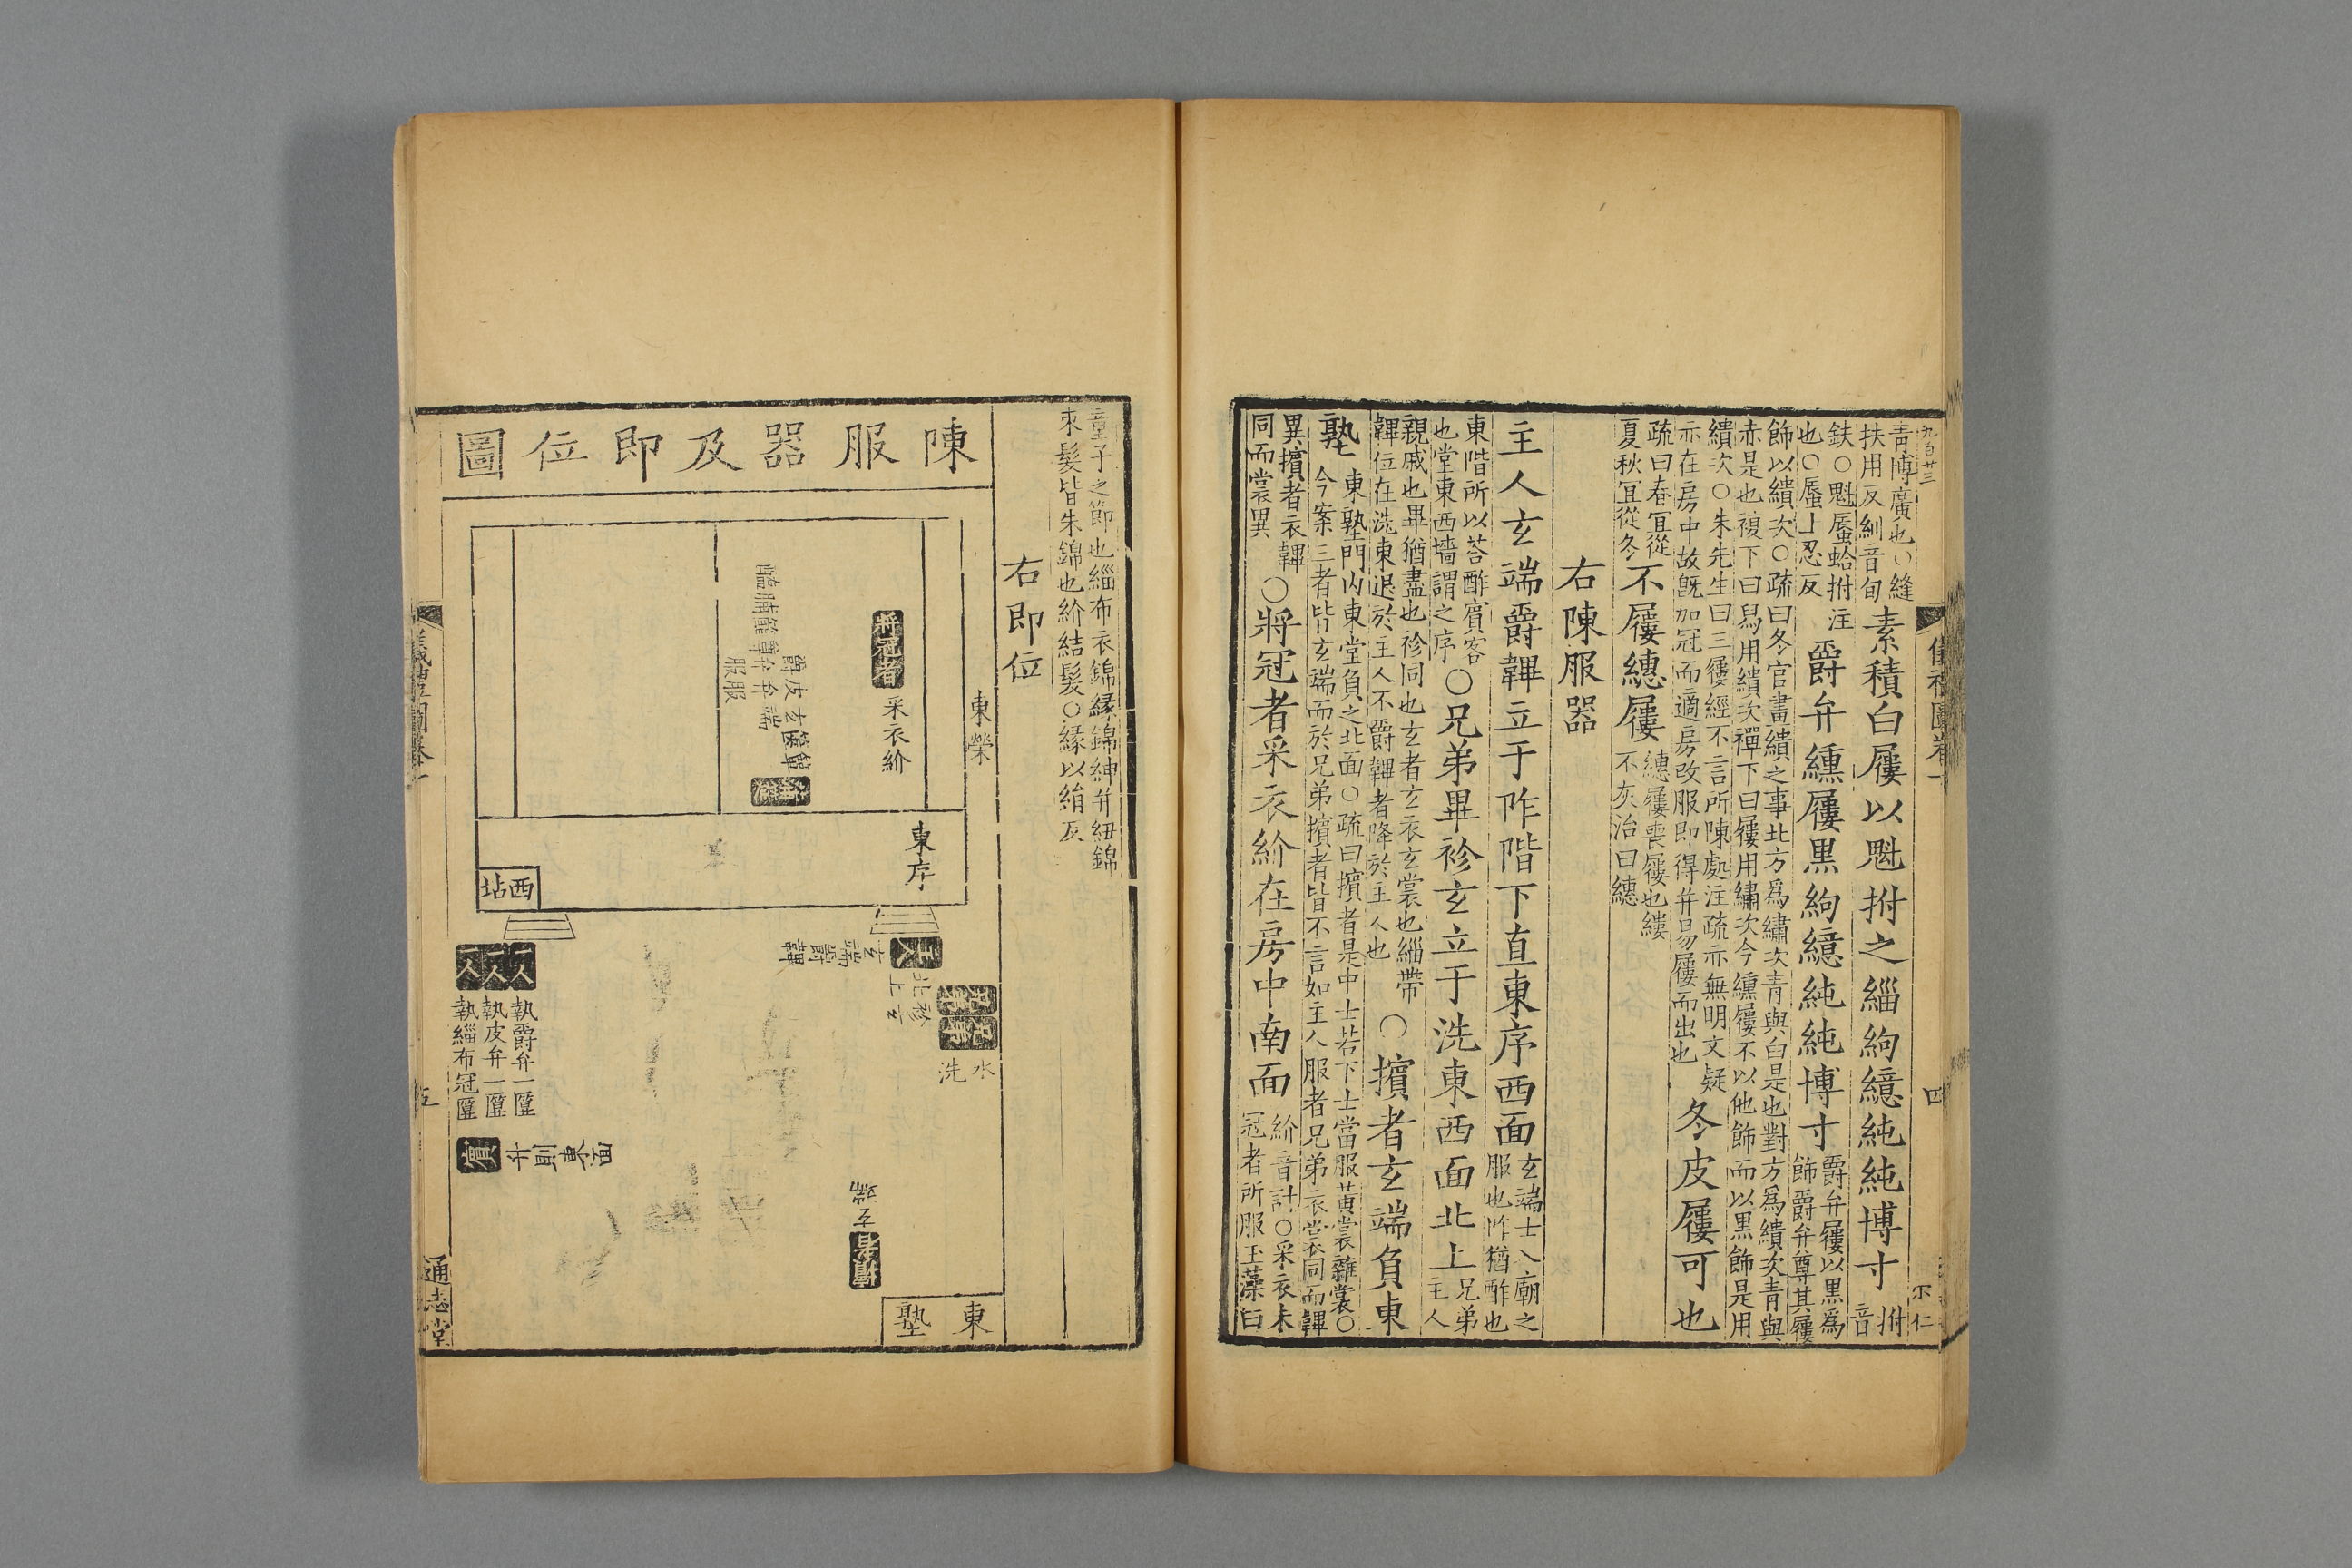 九百廿三
青博廣也○縫
扶用反紃音旬
素積白屨以魁拊之緇絇繶純純博寸
拊
音
鈇○魁蜃蛤拊注
也○蜃上忍反
爵弁纁屨黑絇繶純純博寸
爵弁屨以黑為
飾爵弁尊其屨
飾以繢次○疏曰冬官畫繢之事北方爲繡次青與白是也對方爲繢次青與
赤是也複下曰舄用繢次襌下曰屨用繡次今纁屨不以他飾而以黒飾是用
繢次○朱先生曰三屨經不言所陳處注疏亦無明文疑
亦在房中故旣加冠而適房改服即得并易屨而出也
冬皮屨可也
疏曰春冝從
夏秋冝從冬
不屨繐屨
繐屨喪屨也縷
不灰治曰繐
右陳服器
主人玄端爵韠立于阼階下直東序西面
玄端士入廟之
服也阼猶酢也
東階所以荅酢賓客
也堂東西墻謂之序
○兄弟畢袗玄立于洗東西面北上
兄弟
主人
親戚也畢猶盡也袗同也玄者玄衣玄裳也緇帶
韠位在洗東退於主人不爵韠者降於主人也
○擯者玄端負東
塾
東塾門内東堂負之北面○疏曰擯者是中士若下士當服黄裳雜裳○
今案三者皆玄端而於兄弟擯者皆不言如主人服者兄弟衣裳同而韠
異擯者衣韠
同而裳異
○將冠者采衣紒在房中南面
紒音計○采衣未
冠者所服玉藻曰
儀禮圖卷一
四
不仁
童子之節也緇布衣錦緣錦紳并紐錦
束髮皆朱錦也紒結髮○緣以絹反
右即位
陳服器及即位圖
東榮
將冠者
采衣紒
東序
西坫
玄端爵韠
水
洗
一人
一人
一人
執爵弁一匴
執皮弁一匴
執緇布冠匴
賓
升則東面
擯者
玄端
東塾
儀禮圖卷一
五
通志堂